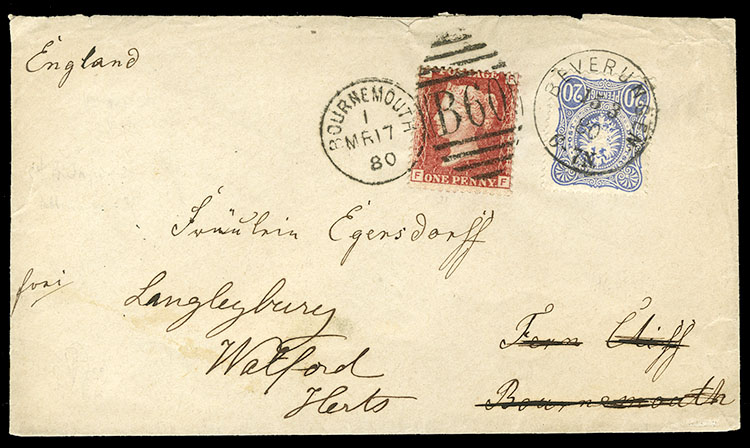 England
BOURNEMOUTH
1
MR 17
80
B60
F F
ONE PENNY
20 20
BEVERUNGEN
Fräulein Egersdorff
Langleybury
Watford
Herts
Fern Cliff
Bournemouth